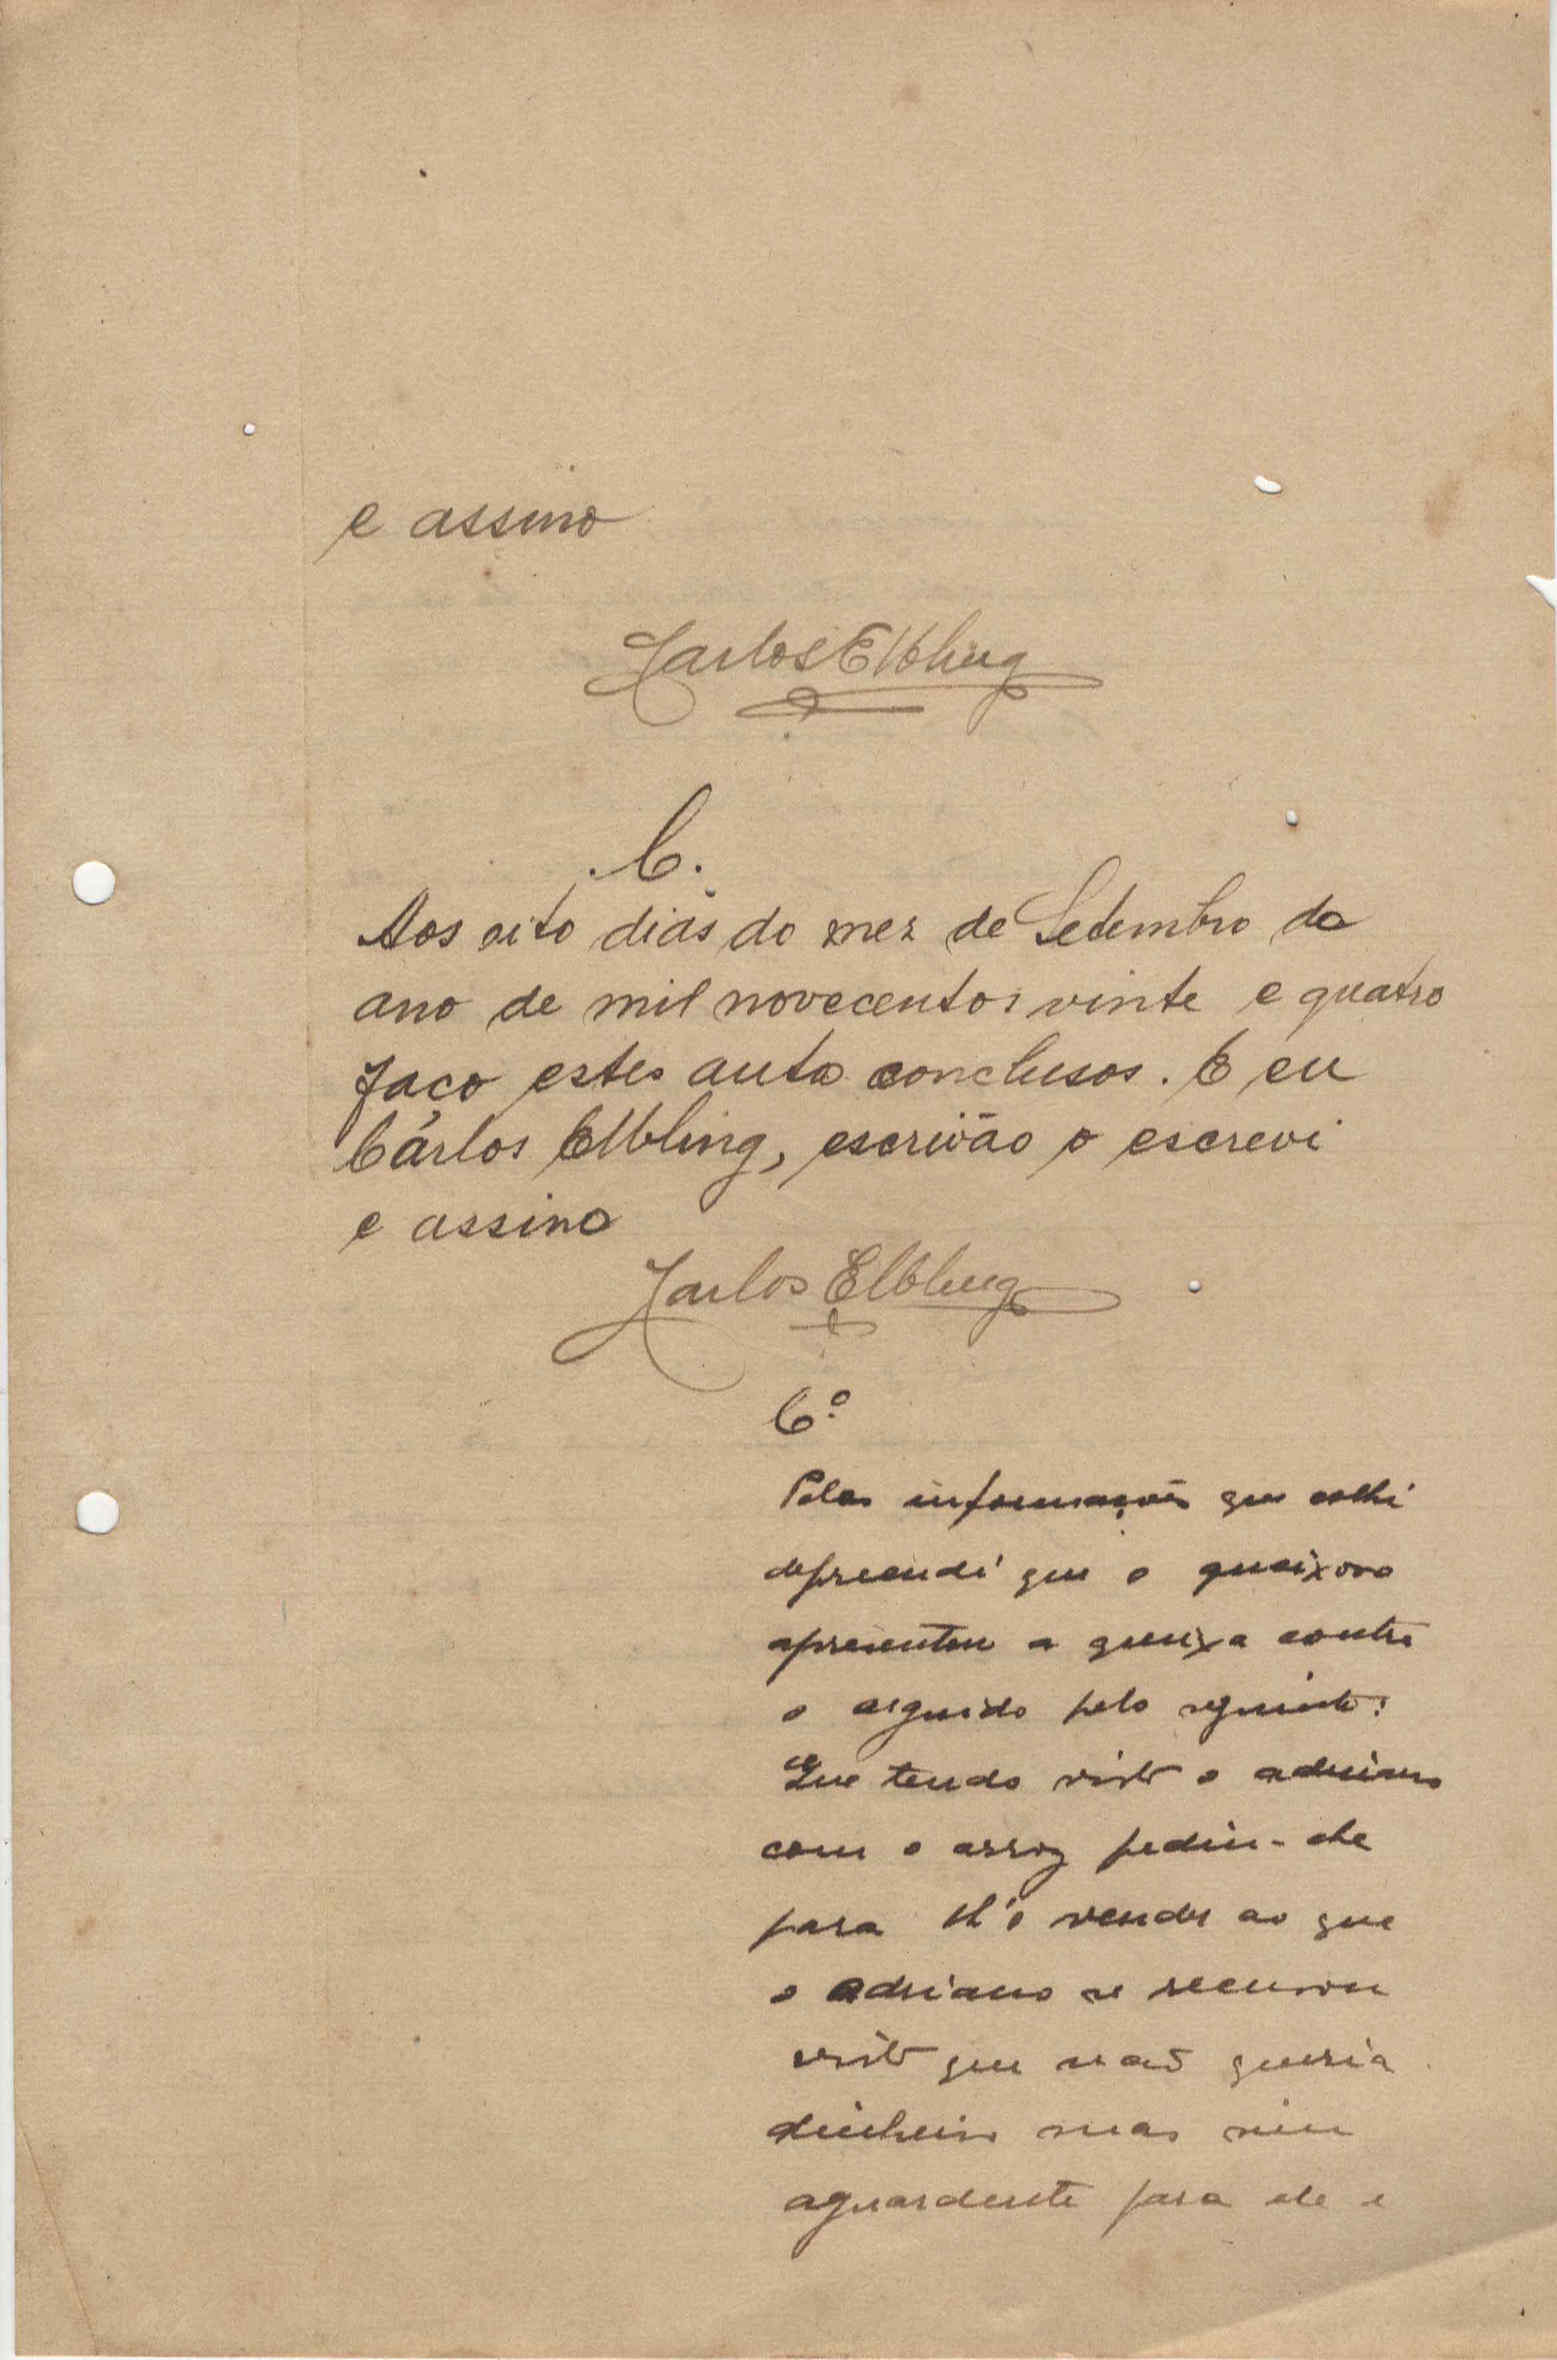 e assino
Carlos Elbling
.C.
Aos oito dias do mez de Setembro do
ano de mil novecentos vinte e quatro
faço estes autos conclusos. E eu
Cárlos Elbling, escrivão o escrevi
e assino
Carlos Elbling
Cº
Pelas informações que colhi
depreendi que o queixoso
apresentou a queixa contra
o arguido pelo seguinte:
Que tendo visto o adriano
com o arroz pediu-lhe
para lh'o vender ao que
o adriano se recusou
visto que não queria
dinheiro mas sim
aguardente para ele e